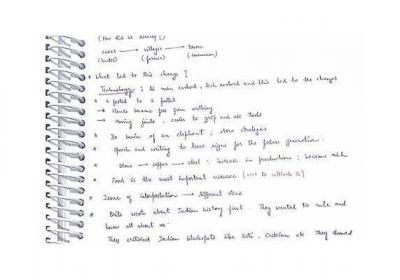 (How did we survive?)
caves → villages → towns
(hunter) (farmer)
* What led to this change?
Technology; As man evolved, tech evolved and this led to the changes
* 4 footed to 2 footed
→ Hands became free from walking
→ Moving joints, easier to grip and use tools
* brain of an elephant; store strategies
* Speech and writing to leave signs for the future generation.
* stone → copper → steel: increase in production: became rich
* Food is the most important resource
* Issue of interpretation → different views
* Brits wrote about Indian history first. They wanted to rule and
know all about us.
They criticised Indian like Sati, etc They showed